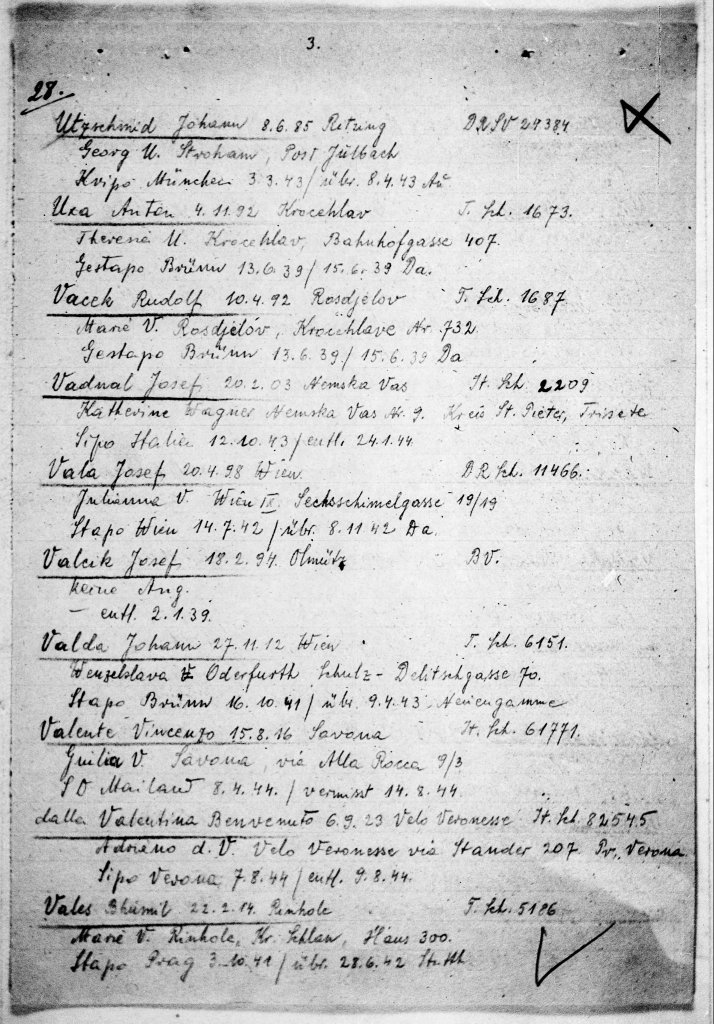 3.
28.
Utzschmid Johann 8.6.85 Ritzing DRSV 24384
Georg U. Stroham, Post Julbach
Kripo München 3.3.43/übr. 8.4.43 Au
Uxa Anton 4.11.92 Krocehlav T. Sch. 1673.
Theresie U. Krocehlav, Bahnhofgasse 407.
Gestapo Brünn 13.6.39/15.6.39 Da.
Vacek Rudolf 10.4.92 Rosdjelov T. Sch. 1687
Marie V. Rosdjelóv, Krocehlave Nr. 732
Gestapo Brünn 13.6.39/15.6.39 Da
Vadnal Josef 20.2.03 Nemska Vas It. Sch. 2209
Katherine Wagner Nemska Vas Nr. 9. Kreis St. Pieter, Trieste
Sipo Italien 12.10.43/entl. 24.1.44
Vala Josef 20.4.98 Wien DR Sch. 11466.
Julianna V. Wien IX. Sechsschimelgasse 19/19
Stapo Wien 14.7.42/übr. 8.11.42 Da.
Valcik Josef 18.2.94. Olmütz BV.
keine Ang.
– entl. 2.1.39.
Valda Johann 27.11.12 Wien T. Sch. 6151.
Wenzelslava V. Oderfurth Schulz-Delitschgasse 70.
Stapo Brünn 16.10.41/übr. 9.4.43 Neuengamme
Valente Vincenzo 15.8.16 Savona It. Sch. 61771.
Guilia V. Savona, via Alla Rocca 9/3
SD Mailand 8.4.44./vermisst 14.8.44.
dalla Valentina Benvenuto 6.9.23 Velo Veronesse It. Sch. 82545
Adriano d. V. Velo Veronesse via Stander 207 Pr. Verona
Sipo Verona 7.8.44/entl. 9.8.44.
Vales 22.2.14. Rinhole T. Sch. 5186
Marie V. Rinhole, Kr. Schlan, Haus 300.
Stapo Prag 3.10.41/übr. 28.6.42 Stutth